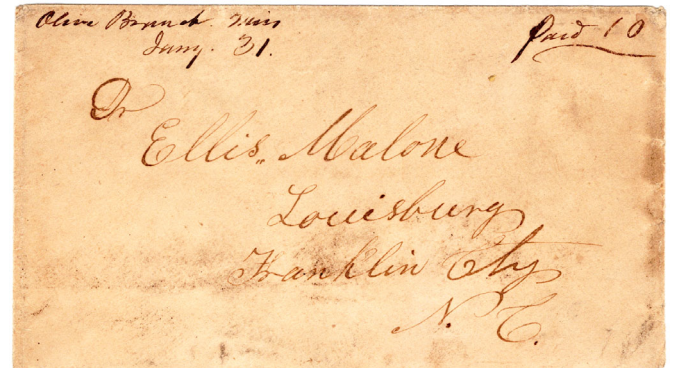 Olive Branch Miss
Jany. 31.
Paid 10
Dr
Ellis Malone
Louisburg
Franklin Cty
N. C.